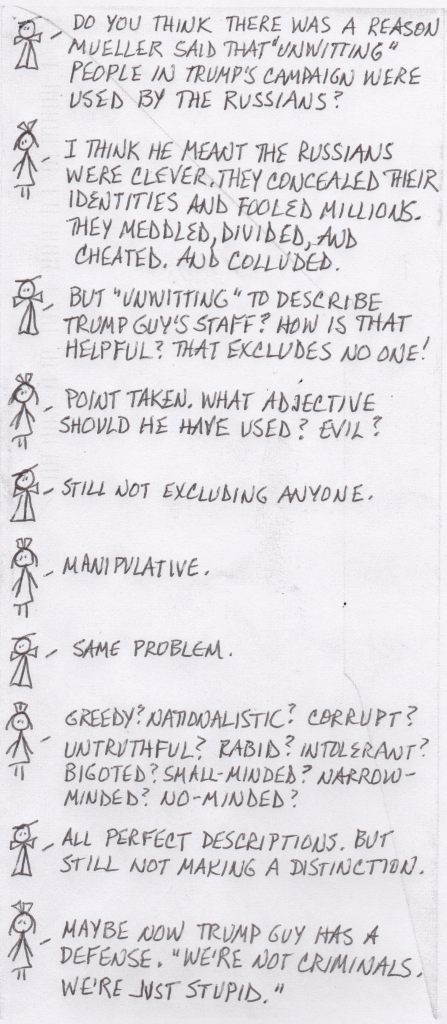 DO YOU THINK THERE WAS A REASON
MUELLER SAID THAT "UNWITTING"
PEOPLE IN TRUMP'S CAMPAIGN WERE
USED BY THE RUSSIANS?
I THINK HE MEANT THE RUSSIANS
WERE CLEVER. THEY CONCEALED THEIR
IDENTITIES AND FOOLED MILLIONS.
THEY MEDDLED, DIVIDED, AND
CHEATED. AND COLLUDED.
BUT "UNWITTING" TO DESCRIBE
TRUMP GUY'S STAFF? HOW IS THAT
HELPFUL? THAT EXCLUDES NO ONE!
POINT TAKEN. WHAT ADJECTIVE
SHOULD HE HAVE USED? EVIL?
STILL NOT EXCLUDING ANYONE.
MANIPULATIVE.
SAME PROBLEM.
GREEDY? NATIONALISTIC? CORRUPT?
UNTRUTHFUL? RABID? INTOLERANT?
BIGOTED? SMALL-MINDED? NARROW-
MINDED? NO-MINDED?
ALL PERFECT DESCRIPTIONS. BUT
STILL NOT MAKING A DISTINCTION.
MAYBE NOW TRUMP GUY HAS A
DEFENSE. "WE'RE NOT CRIMINALS.
WE'RE JUST STUPID."